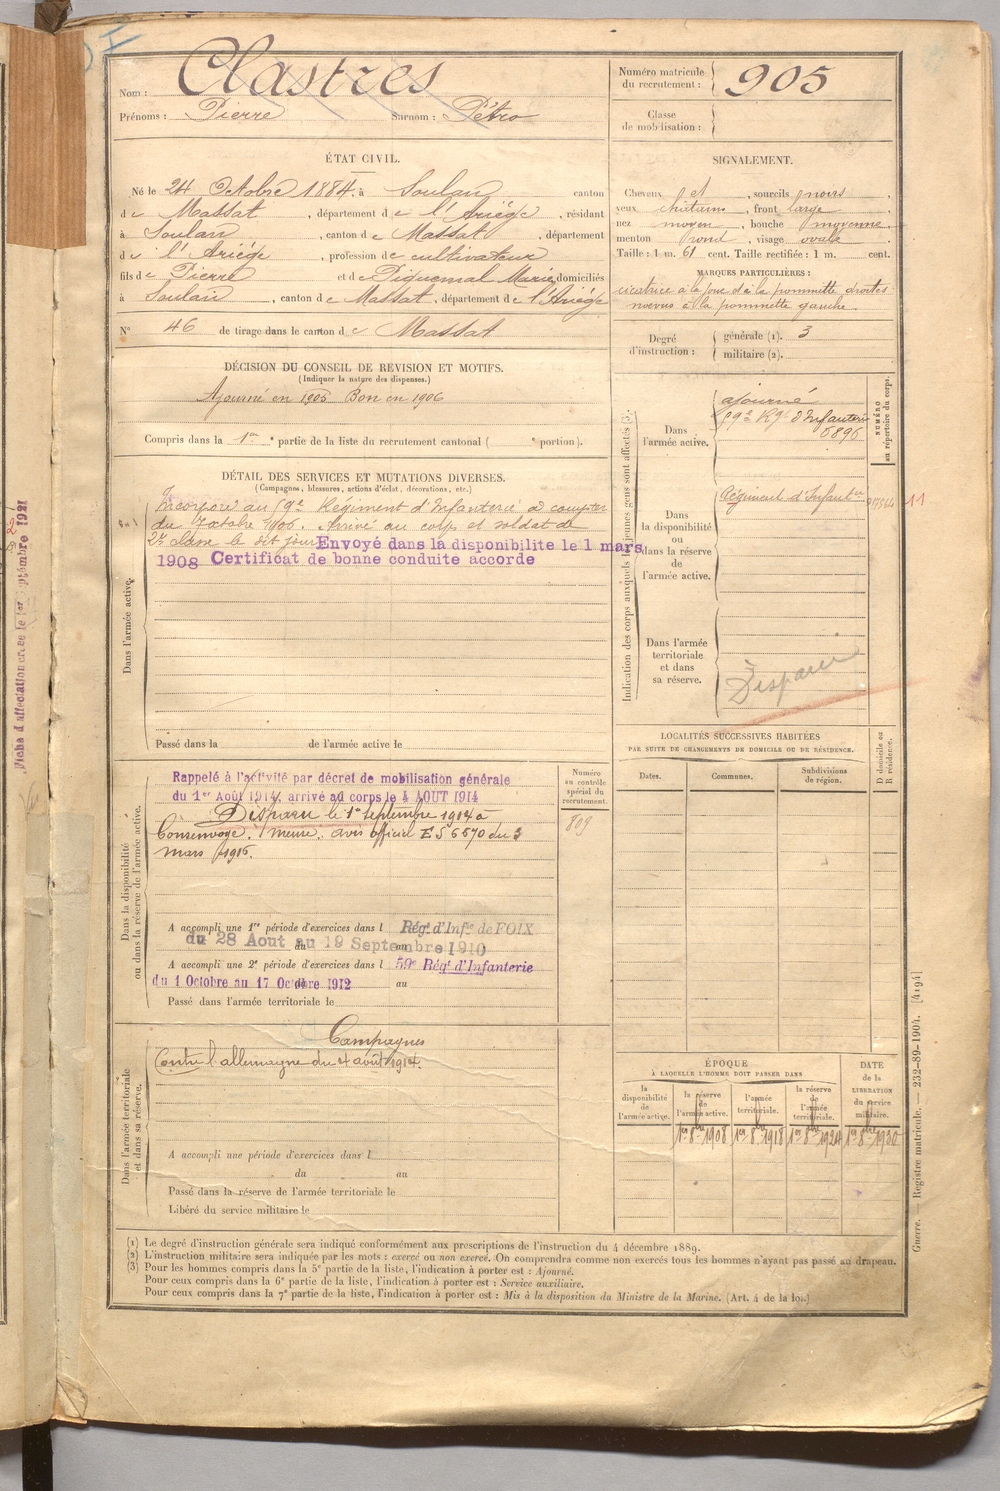 Nom : Clastres
Prénoms : Pierre Surnom : Pétro
Numéro matricule du recrutement : 905
Classe de mobilisation :
ÉTAT CIVIL.
Né le 24 Octobre 1884, à Soulan canton
de Massat, département de l'Ariége, résidant
à Soulan, canton de Massat, département
de l'Ariége, profession de cultivateur
fils de Pierre et de Piquemal Marie, domiciliés
à Soulan, canton de Massat, département de l'Ariége
N° 46 de tirage dans le canton de Massat
SIGNALEMENT.
Cheveux et, sourcils noirs,
yeux chatains, front large
nez moyen, bouche moyenne,
menton rond, visage ovale.
Taille : 1 m. 61 cent. Taille rectifiée : 1 m. cent.
MARQUES PARTICULIÈRES :
cicatrice à la joue d à la pommette droites
noevus à la pommette gauche.
Degré d'instruction : générale (1). 3
militaire (2).
DÉCISION DU CONSEIL DE RÉVISION ET MOTIFS.
(Indiquer la nature des dispenses.)
Ajourné en 1905 Bon en 1906
Compris dans la 1re partie de la liste du recrutement cantonal ( e portion).
DÉTAIL DES SERVICES ET MUTATIONS DIVERSES.
(Campagnes, blessures, actions d'éclat, décorations, etc.)
Dans l'armée active.
Incorporé au 59e Régiment d'Infanterie à compter
du 7 octobre 1906. Arrivé au corps et soldat de
2e classe le dit jour Envoyé dans la disponibilite le 1 mars
1908 Certificat de bonne conduite accorde
Passé dans la de l'armée active le
Indication des corps auxquels les jeunes gens sont affectés (3).
NUMÉRO au répertoire du corps.
Dans l'armée active.
ajourné
59e Rgt d'Infanterie
6896
Dans la disponibilité ou dans la réserve de l'armée active.
Régiment d'Infant
11
Dans l'armée territoriale et dans sa réserve.
Disparu
Dans la disponibilité ou dans la réserve de l'armée active.
Rappelé à l'activité par décret de mobilisation générale
du 1er Août 1914, arrivé au corps le 4 AOUT 1914
Disparu le 1er Septembre 1914 à
Consenvoye. Meuse. avis officiel ES 6570 du 3
mars 1916.
Numéro au contrôle spécial du recrutement.
809
A accompli une 1re période d'exercices dans l Régt d'Infie de FOIX
du 28 Aout au 19 Septembre 1910
A accompli une 2e période d'exercices dans l 59e Régt d'Infanterie
du 1 Octobre au 17 Octobre 1912 au
Passé dans l'armée territoriale le
LOCALITÉS SUCCESSIVES HABITÉES
PAR SUITE DE CHANGEMENTS DE DOMICILE OU DE RÉSIDENCE.
Dates. Communes. Subdivisions de région. D domicile ou R résidence.
Dans l'armée territoriale et dans sa réserve.
Campagnes
Contre l'allemagne du 4 août 1914.
A accompli une période d'exercices dans l
du au
Passé dans la réserve de l'armée territoriale le
Libéré du service militaire le
ÉPOQUE
À LAQUELLE L'HOMME DOIT PASSER DANS
la disponibilité de l'armée active.
la réserve de l'armée active.
l'armée territoriale.
la réserve de l'armée territoriale.
DATE de la LIBÉRATION du service militaire.
1er 8bre 1908 1er 8bre 1918 1er 8bre 1924 1er 8bre 1930
(1) Le degré d'instruction générale sera indiqué conformément aux prescriptions de l'instruction du 4 décembre 1889.
(2) L'instruction militaire sera indiquée par les mots : exercé ou non exercé. On comprendra comme non exercés tous les hommes n'ayant pas passé au drapeau.
(3) Pour les hommes compris dans la 5e partie de la liste, l'indication à porter est : Ajourné.
Pour ceux compris dans la 6e partie de la liste, l'indication à porter est : Service auxiliaire.
Pour ceux compris dans la 7e partie de la liste, l'indication à porter est : Mis à la disposition du Ministre de la Marine. (Art. 4 de la loi.)
Guerre. — Registre matricule. — 232-89-1904. [4194]